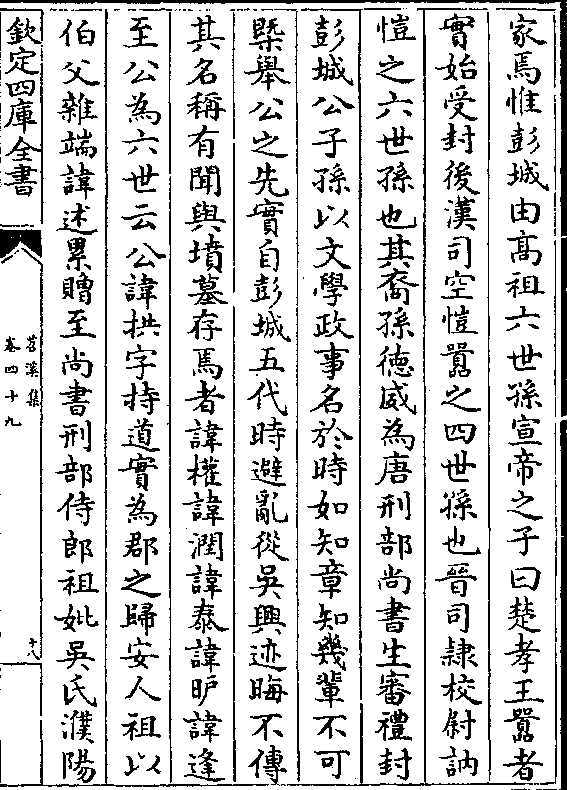 家焉惟彭城由髙祖六世孫宣帝之子曰楚孝王囂者
實始受封後漢司空愷囂之四世孫也晉司隷校尉訥
愷之六世孫也其裔孫徳威為唐刑部尚書生審禮封
彭城公子孫以文學政事名於時如知章知幾輩不可
槩舉公之先實自彭城五代時避亂從吳興迹晦不傳
其名稱有聞與墳墓存焉者諱權諱潤諱泰諱昈諱逢
至公為六世云公諱拱字持道實為郡之歸安人祖以
伯父雜端諱述累贈至尚書刑部侍郎祖妣吳氏濮陽
欽定四庫全書
苕溪集
卷四十九
十八